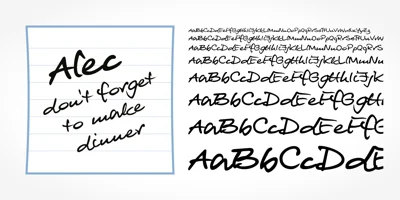 Alec
don't forget
to make
dinner
AaBbCcDdEeFfGgHhIiJjKkLlMmNnOoPpQqRrSsTtUuVvWwXxYyZz
AaBbCcDdEeFfGgHhIiJjKkLlMmNnOoPpQqRrSsTtUuVvWw
AaBbCcDdEeFfGgHhIiJjKkLlMmNnOoPpQqRrS
AaBbCcDdEeFfGgHhIiJjKkLlMmNn
AaBbCcDdEeFfGgHhIiJjK
AaBbCcDdEeFfGgH
AaBbCcDdEeFfG
AaBbCcDdE